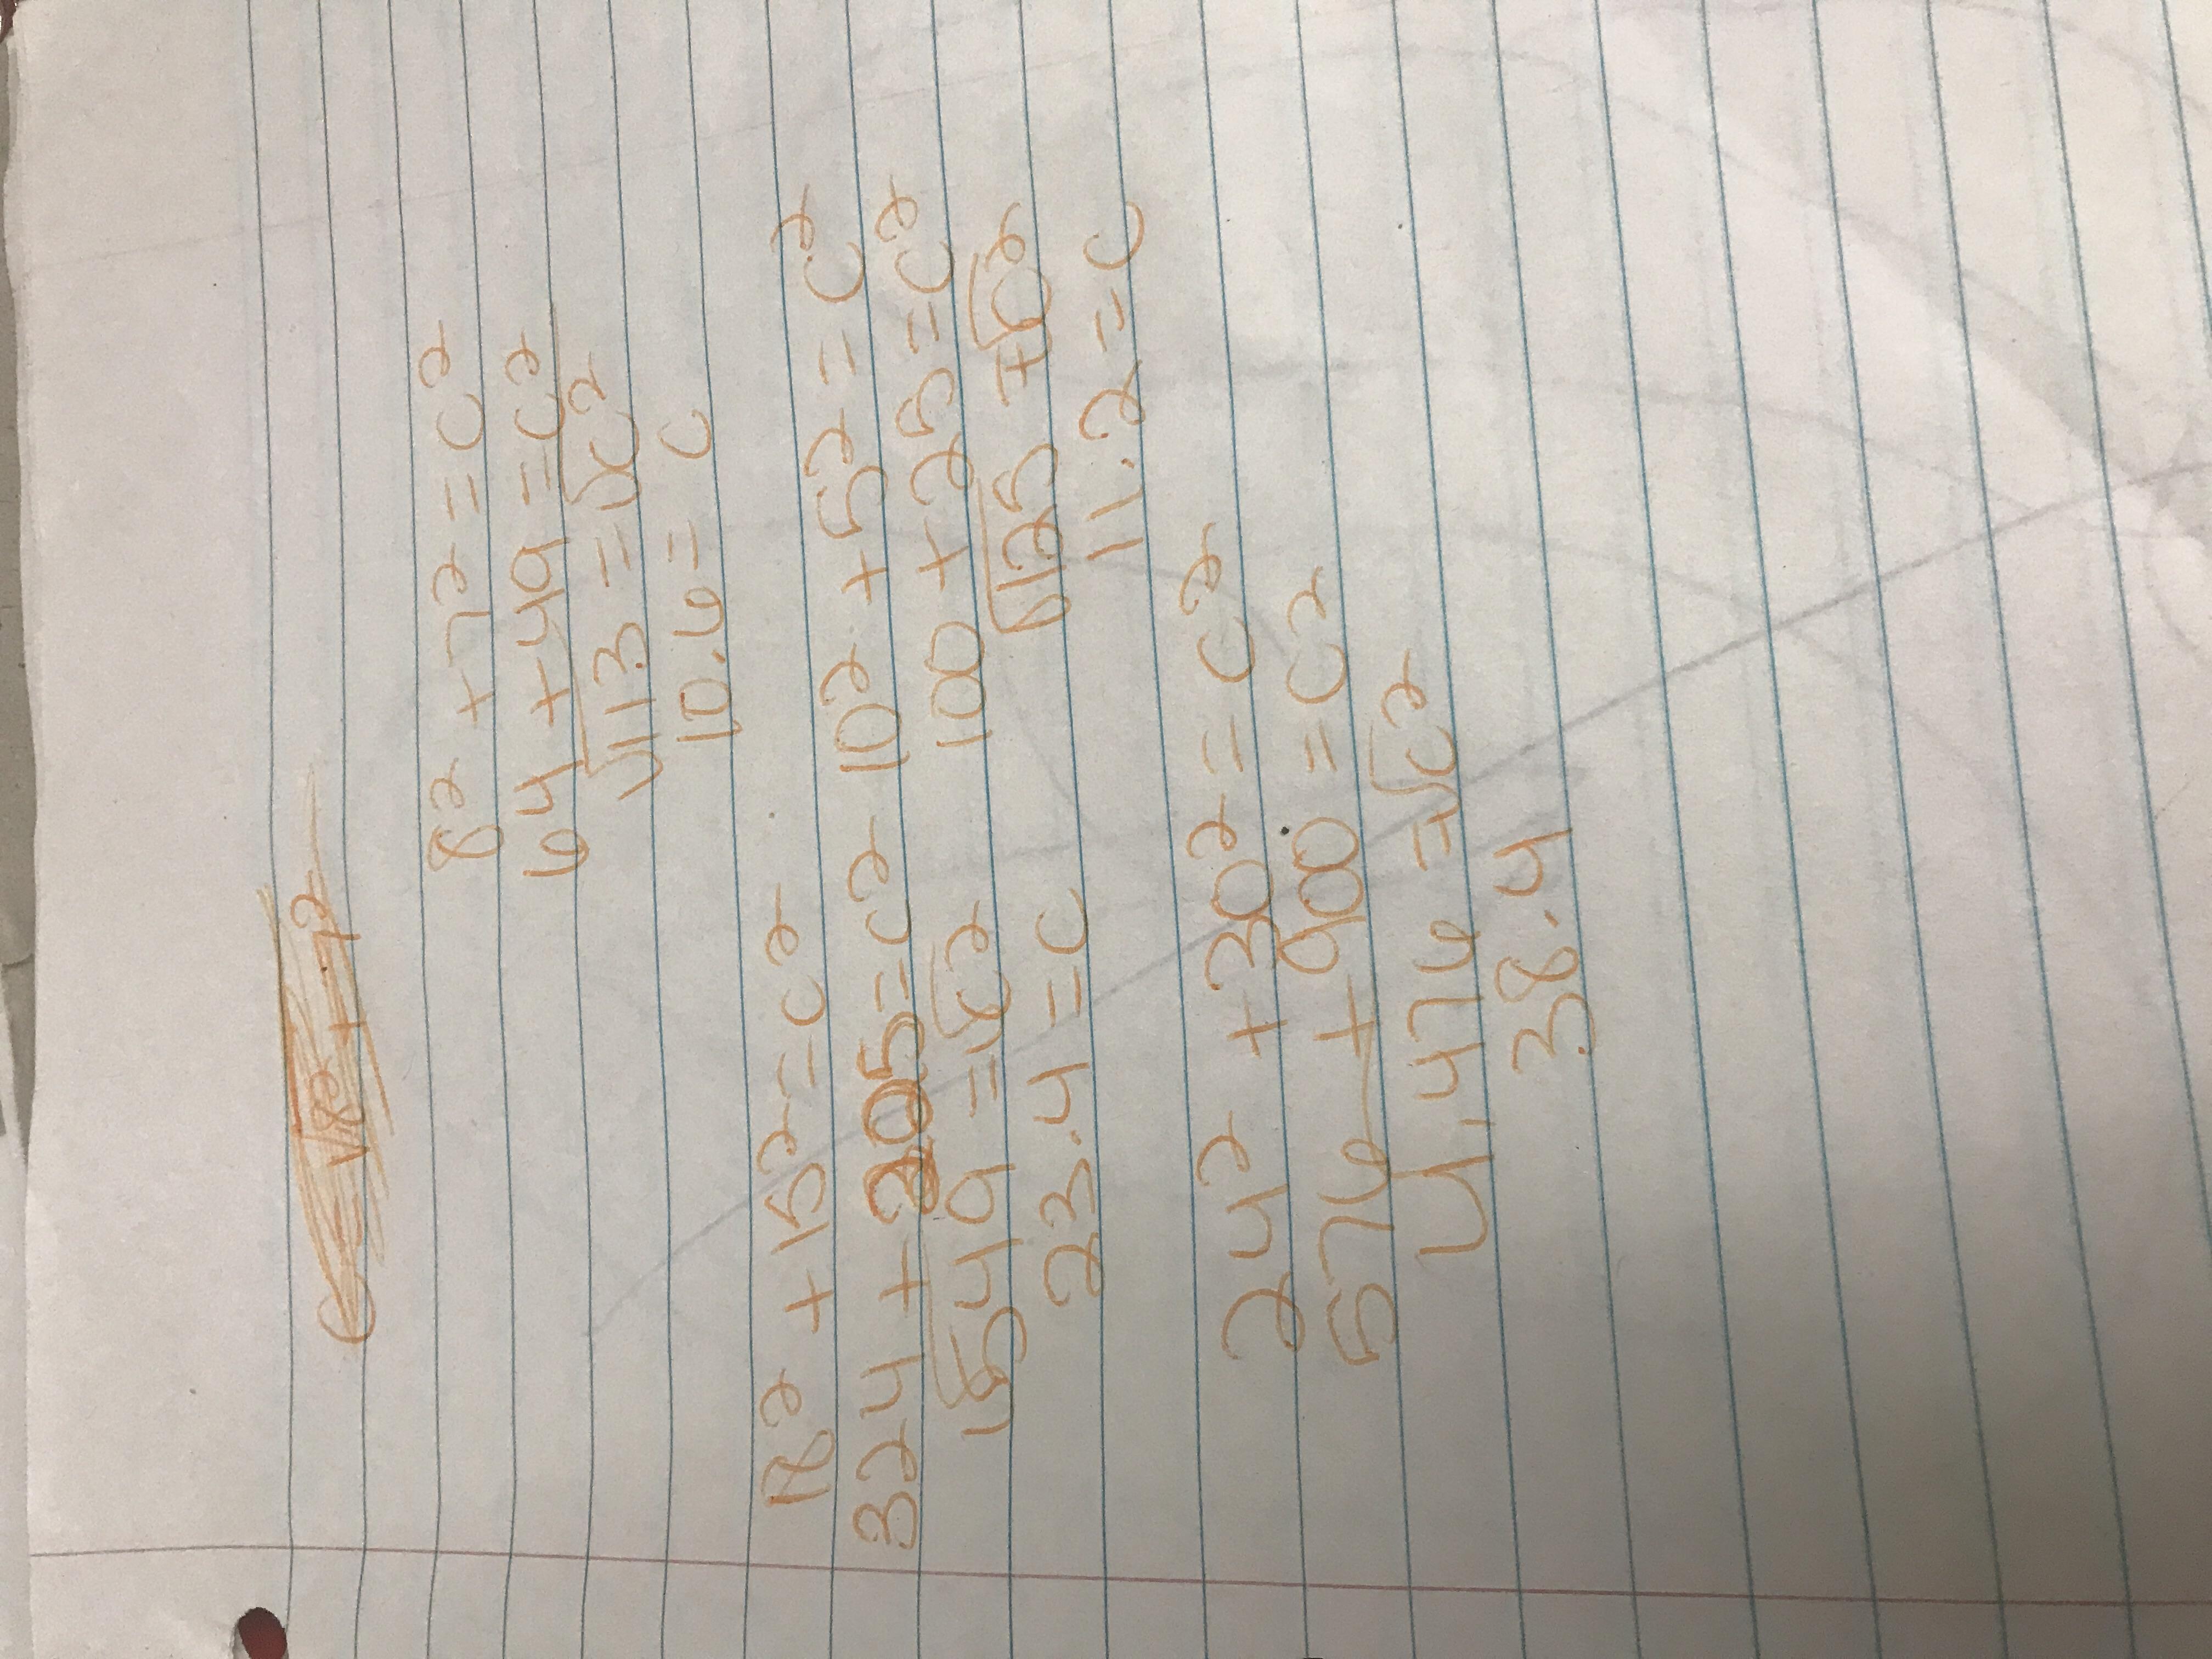 8² + 7² = c²
64 + 49 = c²
√113 = √c²
10.6 = c
18² + 15² = c²
324 + 205 = c²
√549 = √c²
23.4 = c
10² + 5² = c²
100 + 25 = c²
√125 = √c²
11.2 = c
24² + 30² = c²
576 + 900 = c²
√1,476 = √c²
38.4